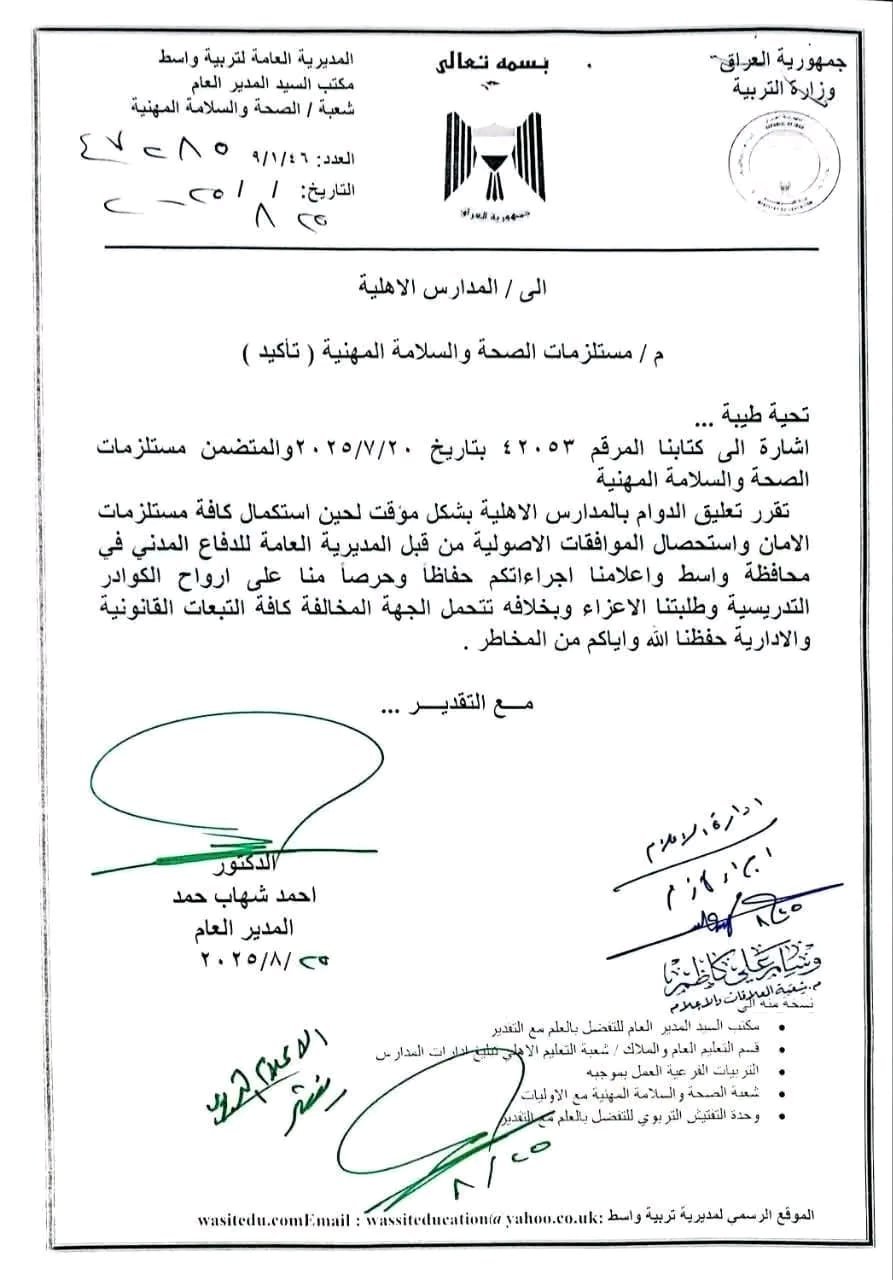 جمهورية العراق
وزارة التربية
بسمه تعالى
جمهورية العراق
المديرية العامة لتربية واسط
مكتب السيد المدير العام
شعبة / الصحة والسلامة المهنية
العدد: ٩/١/٤٦
التاريخ: / /
الى / المدارس الاهلية
م / مستلزمات الصحة والسلامة المهنية ( تأكيد )
تحية طيبة ...
اشارة الى كتابنا المرقم ٤٢٠٥٣ بتاريخ ٢٠٢٥/٧/٢٠والمتضمن مستلزمات
الصحة والسلامة المهنية
تقرر تعليق الدوام بالمدارس الاهلية بشكل مؤقت لحين استكمال كافة مستلزمات
الامان واستحصال الموافقات الاصولية من قبل المديرية العامة للدفاع المدني في
محافظة واسط واعلامنا اجراءاتكم حفاظاً وحرصاً منا على ارواح الكوادر
التدريسية وطلبتنا الاعزاء وبخلافه تتحمل الجهة المخالفة كافة التبعات القانونية
والادارية حفظنا الله واياكم من المخاطر .
مـــع التقديـــر ...
الدكتور
احمد شهاب حمد
المدير العام
٢٠٢٥/٨/٢٥
ادارة الاعلام
٨/٢٥
وسام علي كاظم
م. شعبة العلاقات والاعلام
نسخة منه الى
• مكتب السيد المدير العام للتفضل بالعلم مع التقدير
• قسم التعليم العام والملاك / شعبة التعليم الاهلي تبليغ ادارات المدارس
• التربيات الفرعية العمل بموجبه
• شعبة الصحة والسلامة المهنية مع الاوليات
• وحدة التفتيش التربوي للتفضل بالعلم مع التقدير
٨/٢٥
الموقع الرسمي لمديرية تربية واسط :wasitedu.comEmail : wassiteducation@yahoo.co.uk